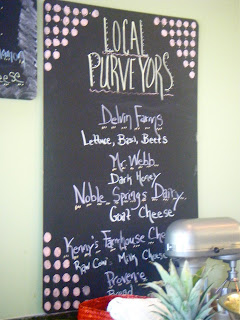 LOCAL
PURVEYORS
Delvin Farms
Lettuce, Basil, Beets
Mr. Webb
Dark Honey
Noble Springs Dairy
Goat Cheese
Kenny's Farmhouse Che
Raw Cow's Milk Cheese
Provence
Bread